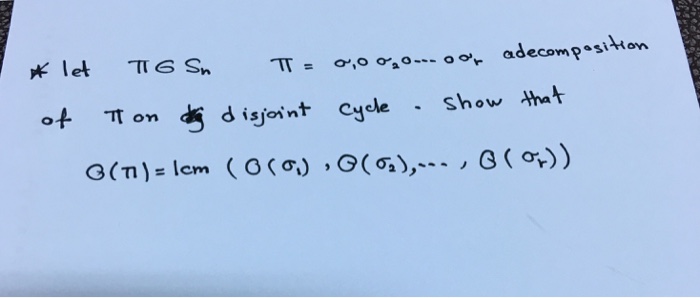 * let π ∈ Sn π = σ₁ o σ₂ o --- o σr adecomposition
of π on disjoint cycle . show that
O(π) = lcm ( O(σ₁) , O(σ₂) , --- , O(σr))